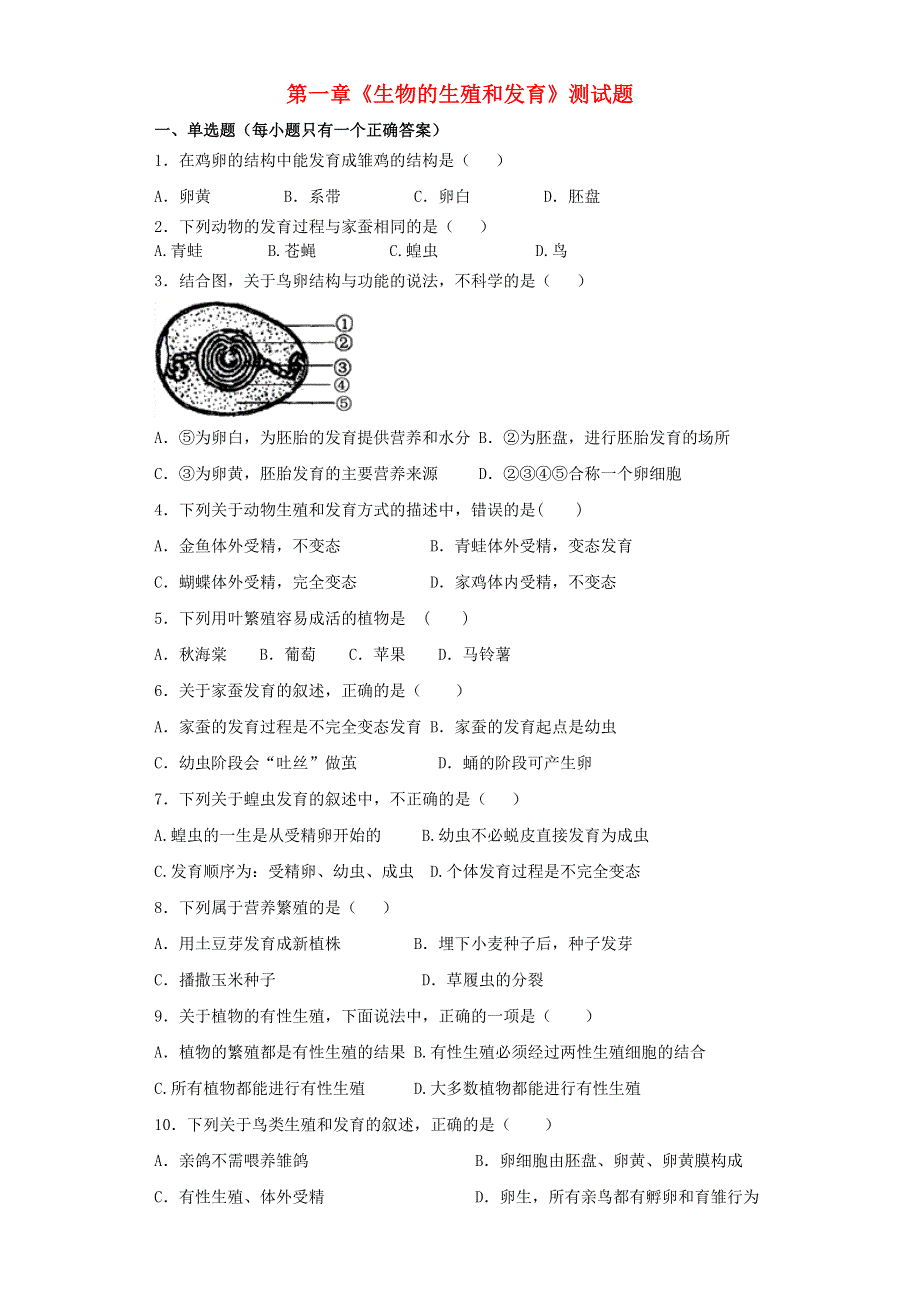 第一章《生物的生殖和发育》测试题
一、单选题（每小题只有一个正确答案）
1．在鸡卵的结构中能发育成雏鸡的结构是（　　）
A．卵黄　　　　B．系带　　　　C．卵白　　　　D．胚盘
2．下列动物的发育过程与家蚕相同的是（　　）
A.青蛙　　　　B.苍蝇　　　　C.蝗虫　　　　D.鸟
3．结合图，关于鸟卵结构与功能的说法，不科学的是（　　）
①
②
③
④
⑤
A．⑤为卵白，为胚胎的发育提供营养和水分 B．②为胚盘，进行胚胎发育的场所
C．③为卵黄，胚胎发育的主要营养来源　　D．②③④⑤合称一个卵细胞
4．下列关于动物生殖和发育方式的描述中，错误的是(　　)
A．金鱼体外受精，不变态　　　　B．青蛙体外受精，变态发育
C．蝴蝶体外受精，完全变态　　　　D．家鸡体内受精，不变态
5．下列用叶繁殖容易成活的植物是　(　　)
A．秋海棠　　B．葡萄　　C．苹果　　D．马铃薯
6．关于家蚕发育的叙述，正确的是（　　）
A．家蚕的发育过程是不完全变态发育 B．家蚕的发育起点是幼虫
C．幼虫阶段会“吐丝”做茧　　　　D．蛹的阶段可产生卵
7．下列关于蝗虫发育的叙述中，不正确的是（　　）
A.蝗虫的一生是从受精卵开始的　　B.幼虫不必蜕皮直接发育为成虫
C.发育顺序为：受精卵、幼虫、成虫　D.个体发育过程是不完全变态
8．下列属于营养繁殖的是（　　）
A．用土豆芽发育成新植株　　　　B．埋下小麦种子后，种子发芽
C．播撒玉米种子　　　　D．草履虫的分裂
9．关于植物的有性生殖，下面说法中，正确的一项是（　　）
A．植物的繁殖都是有性生殖的结果 B.有性生殖必须经过两性生殖细胞的结合
C.所有植物都能进行有性生殖　　D.大多数植物都能进行有性生殖
10．下列关于鸟类生殖和发育的叙述，正确的是（　　）
A．亲鸽不需喂养雏鸽　　　　B．卵细胞由胚盘、卵黄、卵黄膜构成
C．有性生殖、体外受精　　　　D．卵生，所有亲鸟都有孵卵和育雏行为